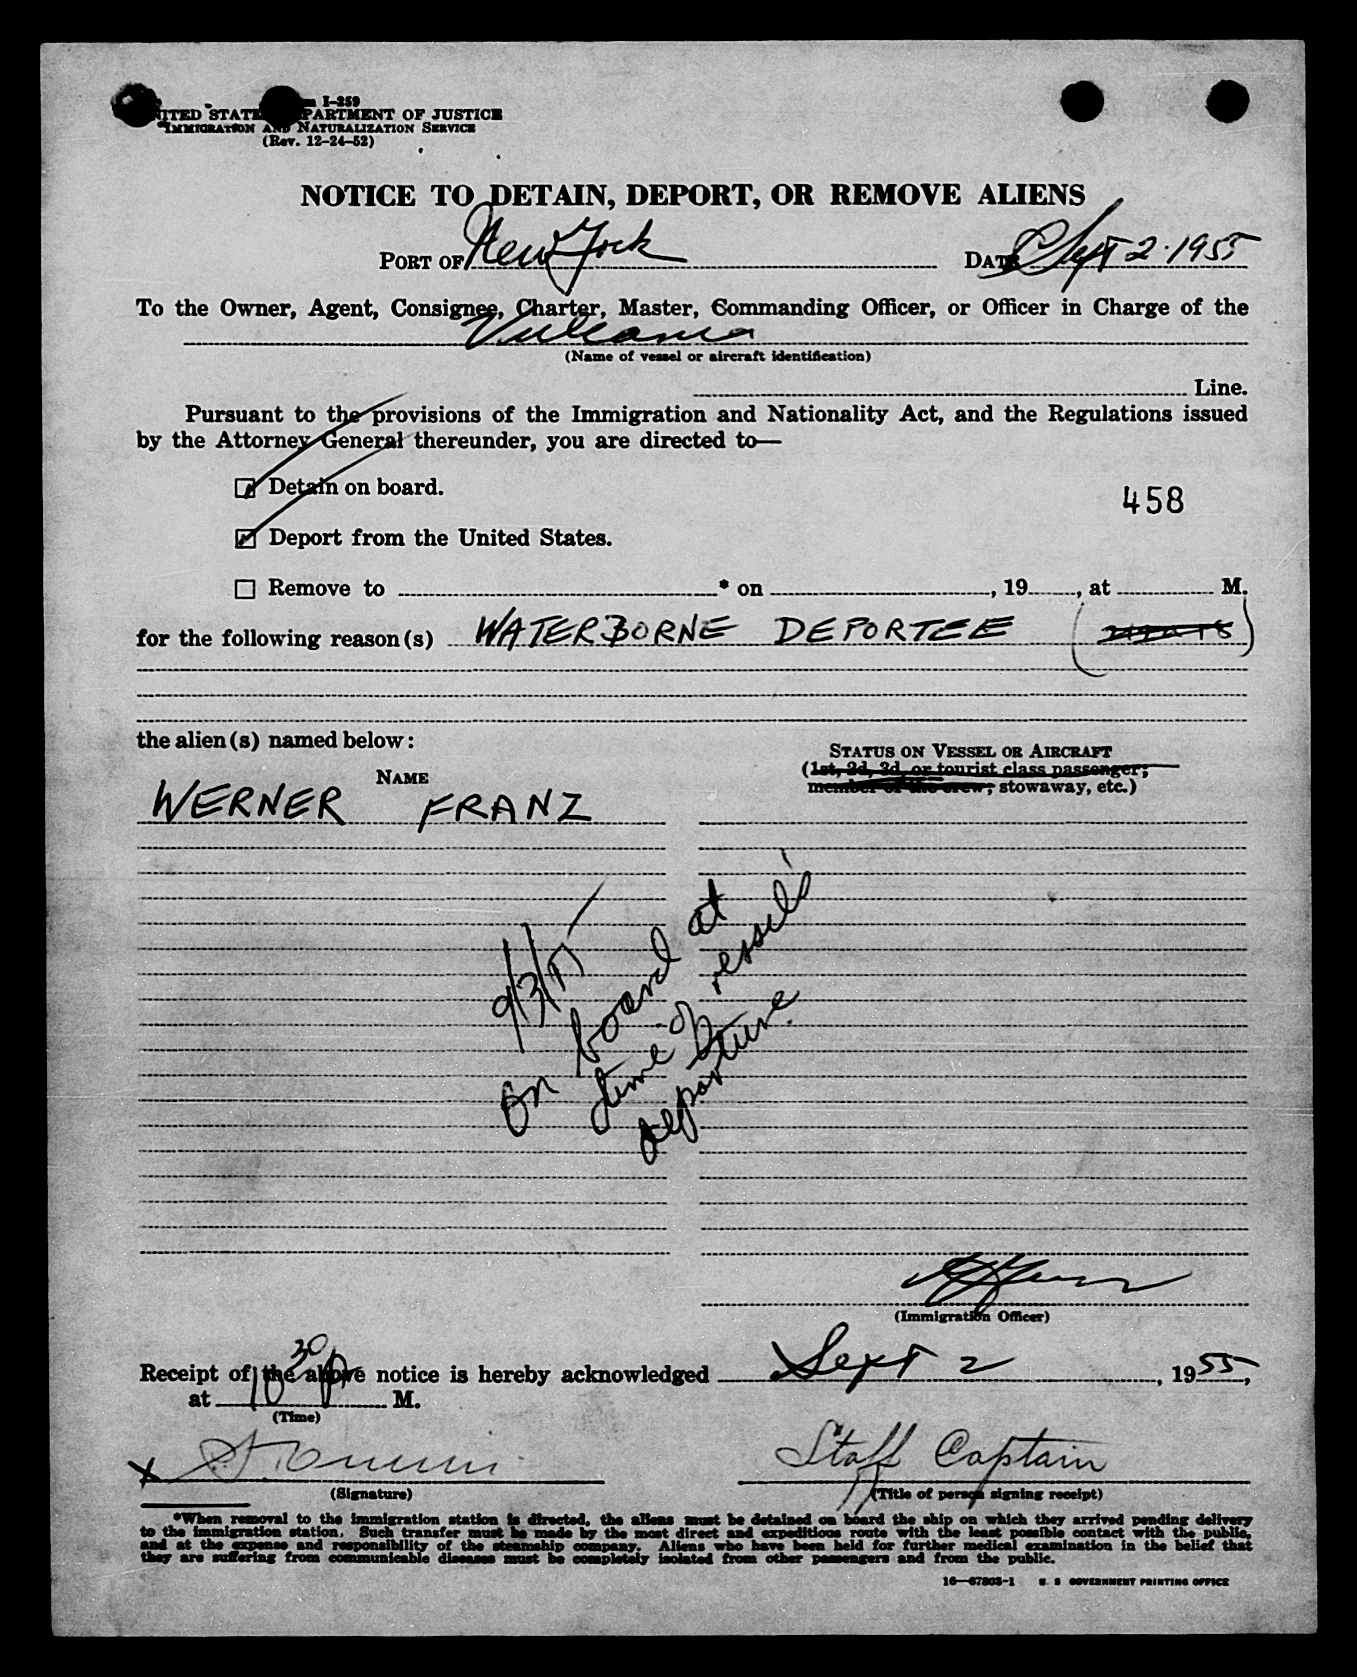 I-259
UNITED STATES DEPARTMENT OF JUSTICE
IMMIGRATION AND NATURALIZATION SERVICE
(Rev. 12-24-52)
NOTICE TO DETAIN, DEPORT, OR REMOVE ALIENS
PORT OF New York DATE Sept 2 1955
To the Owner, Agent, Consignee, Charter, Master, Commanding Officer, or Officer in Charge of the
Vulcania
(Name of vessel or aircraft identification)
Line.
Pursuant to the provisions of the Immigration and Nationality Act, and the Regulations issued
by the Attorney General thereunder, you are directed to—
Detain on board.
458
Deport from the United States.
Remove to * on , 19 , at M.
for the following reason(s) WATERBORNE DEPORTEE
the alien(s) named below:
STATUS ON VESSEL OR AIRCRAFT
NAME (1st, 2d, 3d, or tourist class passenger;
member of the crew; stowaway, etc.)
WERNER FRANZ
9/3/55
On board at
time of vessel's
departure
(Immigration Officer)
Receipt of the above notice is hereby acknowledged Sept 2, 1955,
at 10 30 P M.
(Time)
X Staff Captain
(Signature) (Title of person signing receipt)
*When removal to the immigration station is directed, the aliens must be detained on board the ship on which they arrived pending delivery
to the immigration station. Such transfer must be made by the most direct and expeditious route with the least possible contact with the public,
and at the expense and responsibility of the steamship company. Aliens who have been held for further medical examination in the belief that
they are suffering from communicable diseases must be completely isolated from other passengers and from the public.
16—67803-1 U. S. GOVERNMENT PRINTING OFFICE